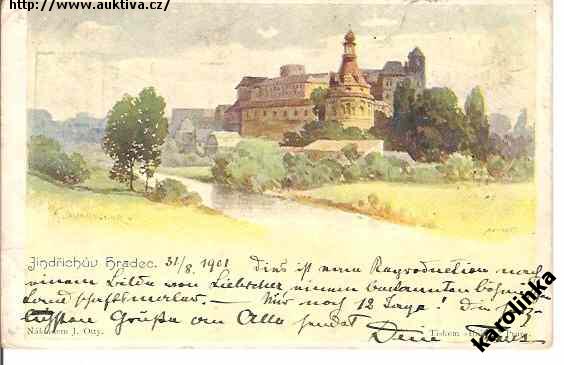 http://www.auktiva.cz/
Jindřichův Hradec. 31/8. 1901 dies ist eine Reproduction nach
einem Bilde von Liebscher einem bedeutenden böhm.
Landschaftsmaler. — Nur noch 12 Tage! Die
Grüße an Alle sendet Dein
Nákladem J. Otty. Tiskem
karolinka